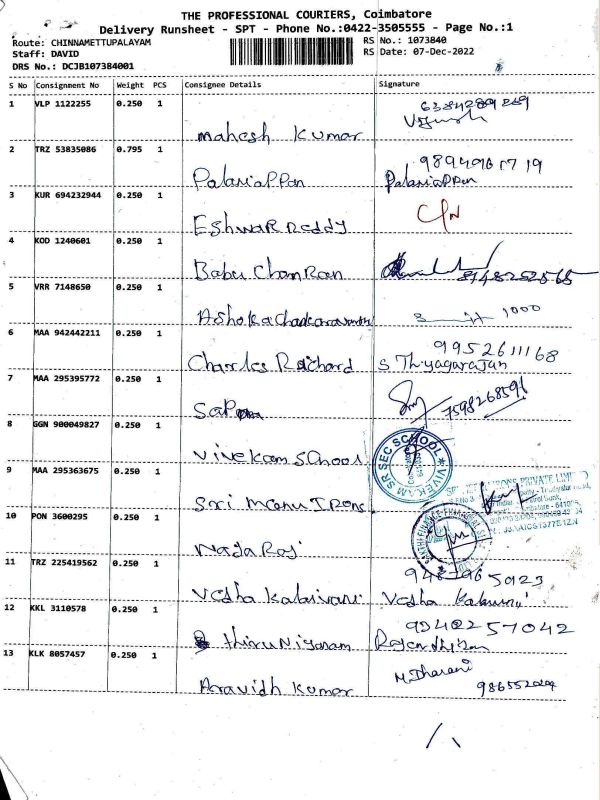 THE PROFESSIONAL COURIERS, Coimbatore
Delivery Runsheet - SPT - Phone No.:0422-3505555 - Page No.:1
Route: CHINNAMETTUPALAYAM RS No.: 1073840
Staff: DAVID RS Date: 07-Dec-2022
DRS No.: DCJB107384001
S No Consignment No Weight PCS Consignee Details Signature
1 VLP 1122255 0.250 1
6384289269
Mahesh Kumar
2 TRZ 53835086 0.795 1
PalaniaPPan PalaniaPPan
3 KUR 694232944 0.250 1
EShwaR Reddy
4 KOD 1240601 0.250 1
Babu
5 VRR 7148650 0.250 1
1000
6 MAA 942442211 0.250 1
9952611168
Charles Raichard S Thyagarajan
7 MAA 295395772 0.250 1
7598268591
8 GGN 900049827 0.250 1
Vivekam School
VIVEKAM SR SEC SCHOOL
9 MAA 295363675 0.250 1
PRIVATE LIMITED
Sri Meenu Irons
10 PON 3600295 0.250 1
NagaRaj
11 TRZ 225419562 0.250 1
Vedha Kalaivani Vedha
12 KKL 3110578 0.250 1
13 KLK 8057457 0.250 1
M. Dharani
Aravidh Kumar